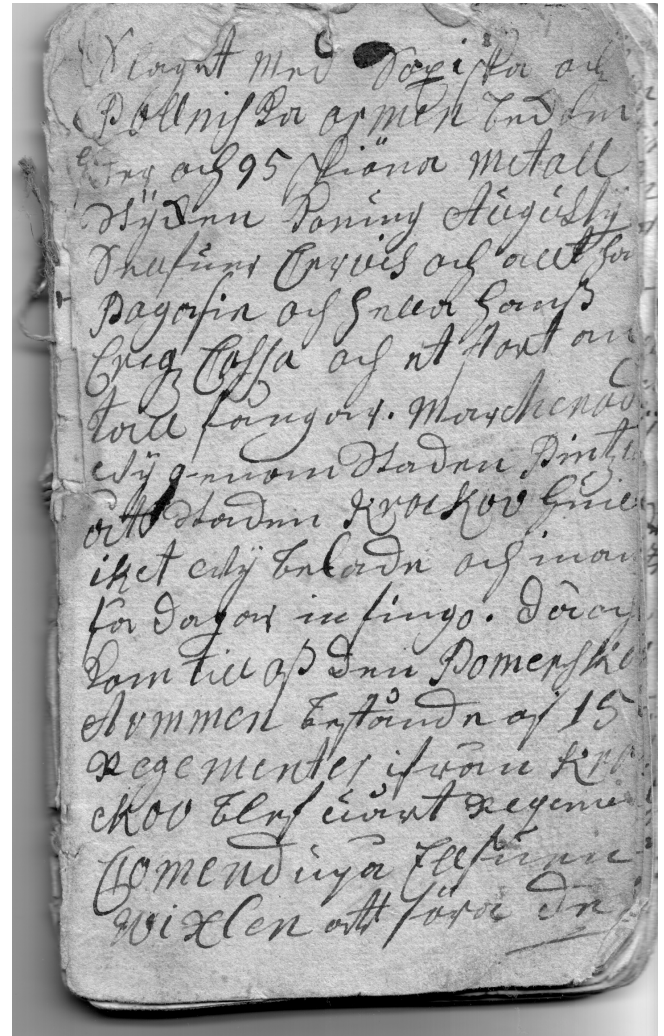 Slaget med Saxiska och
Pollniska armen
och 95 skiöna metall
stÿcken Koning Augusty
Sellfuer Cervies och allt ha
Bagasie och hella hanß
Crigz Cassa och et stort an
tall fångar. Marcherad
Wÿ genom Staden Pintz
ått Staden Krackov huil
iket Wÿ belade och innan
få dagar in fingo. då
kom till oß den Pomerska
Armmen bestånde af 15
Regementer ifrån Kra
ckov blef uårt Regeme
Comendu
Wixlen att föra de